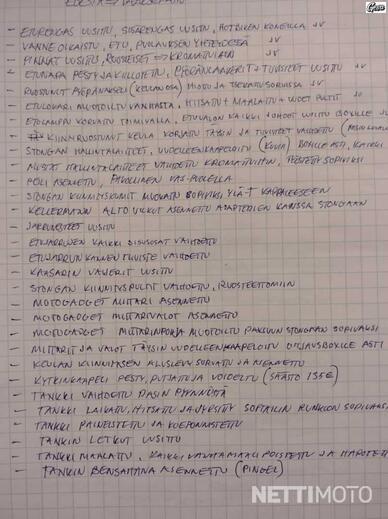 - ETURENGAS UUSITTU, SISÄRENGAS UUSITTU, HOTBIKEN KONEILLA JV
- VANNE OIKAISTU, ETU, PUOLAUKSEN YHTEYDESSÄ JV
- PINNAT UUSITTU, RUOSTEISET => KROMATTUIHIN JV
- ETUNAPA PESTY JA KIILLOTETTU, PYÖRÄNLAAKERIT + TIIVISTEET UUSITTU JV
- RUOSTUNUT PYÖRÄNAKSELI (KEULAN OSA) HIOTTU JA TSEKATTU SORVISSA JV
- ETULOKARI MUOTOILTU VANHASTA, HITSATTU & MAALATTU & UUDET PULTIT JV
- ETULAMPPU KORVATTU TOIMIVALLA, ETUVALON KAIKKI JOHDOT UUSITTU BOXILLE JV
- KIINNIRUOSTUNUT KEULA KORVATTU TÄYSIN JA TIIVISTEET VAIHDETTU
- STONGAN HALLINTALAITTEET, UUDELLEENKAAPELOITU (KUVA) BOXILLE ASTI, KAIKKI
- MUSTAT HALLINTALAITTEET VAIHDETTU KROMATTUIHIN, PESTETTY SOPIVIKSI
- PEILI ASENNETTU, PAKOLLINEN VAS-PUOLELLA
- STONGAN KIINNITYSKUMIT MUOKATTU SOPIVIKSI YLÄ-T KAPPALEESEEN
- KELLERMANN ALTO VILKUT ASENNETTU ADAPTERIEN KANSSA STONGAAN
- JARRUNESTEET UUSITTU
- ETUJARRUN KAIKKI SISUSOSAT VAIHDETTU
- ETUJARRUN KANNEN TIIVISTE VAIHDETTU
- KAASARIN VAIJERIT UUSITTU
- STONGAN KIINNITYSPULTIT VAIHDETTU, RUOSTEETTOMIIN
- MOTOGADGET MITTARI ASENNETTU
- MOTOGADGET MITTARIVALOT ASENNETTU
- MOTOGADGET MITTARINPOHJA MUOTOILTU PAKSUUN STONGAAN SOPIVAKSI
- MITTARIT JA VALOT TÄYSIN UUDELLEENKAAPELOITU OHJAUSBOXILLE ASTI
- KEULAN KIINNITYKSEN ALUSLEVY SORVATTU JA ASENNETTU
- KYTKINKAAPELI PESTY, PUTSATTU JA VOIDELTU (SÄÄSTÖ 135€)
- TANKKI VAIHDETTU PASIN PYYNNÖSTÄ
- TANKKI LEIKATTU, HITSATTU JA JYRSITTY SOFTAILIN RUNKOON SOPIVAKSI
- TANKKI PAINEISTETTU JA KOEPONNISTETTU
- TANKIN LETKUT UUSITTU
- TANKKI MAALATTU, KAIKKI VANHA MAALI POISTETTU JA HAPOTETTU
- TANKIN BENSAHANA ASENNETTU (PINGEL)
NETTIMOTO